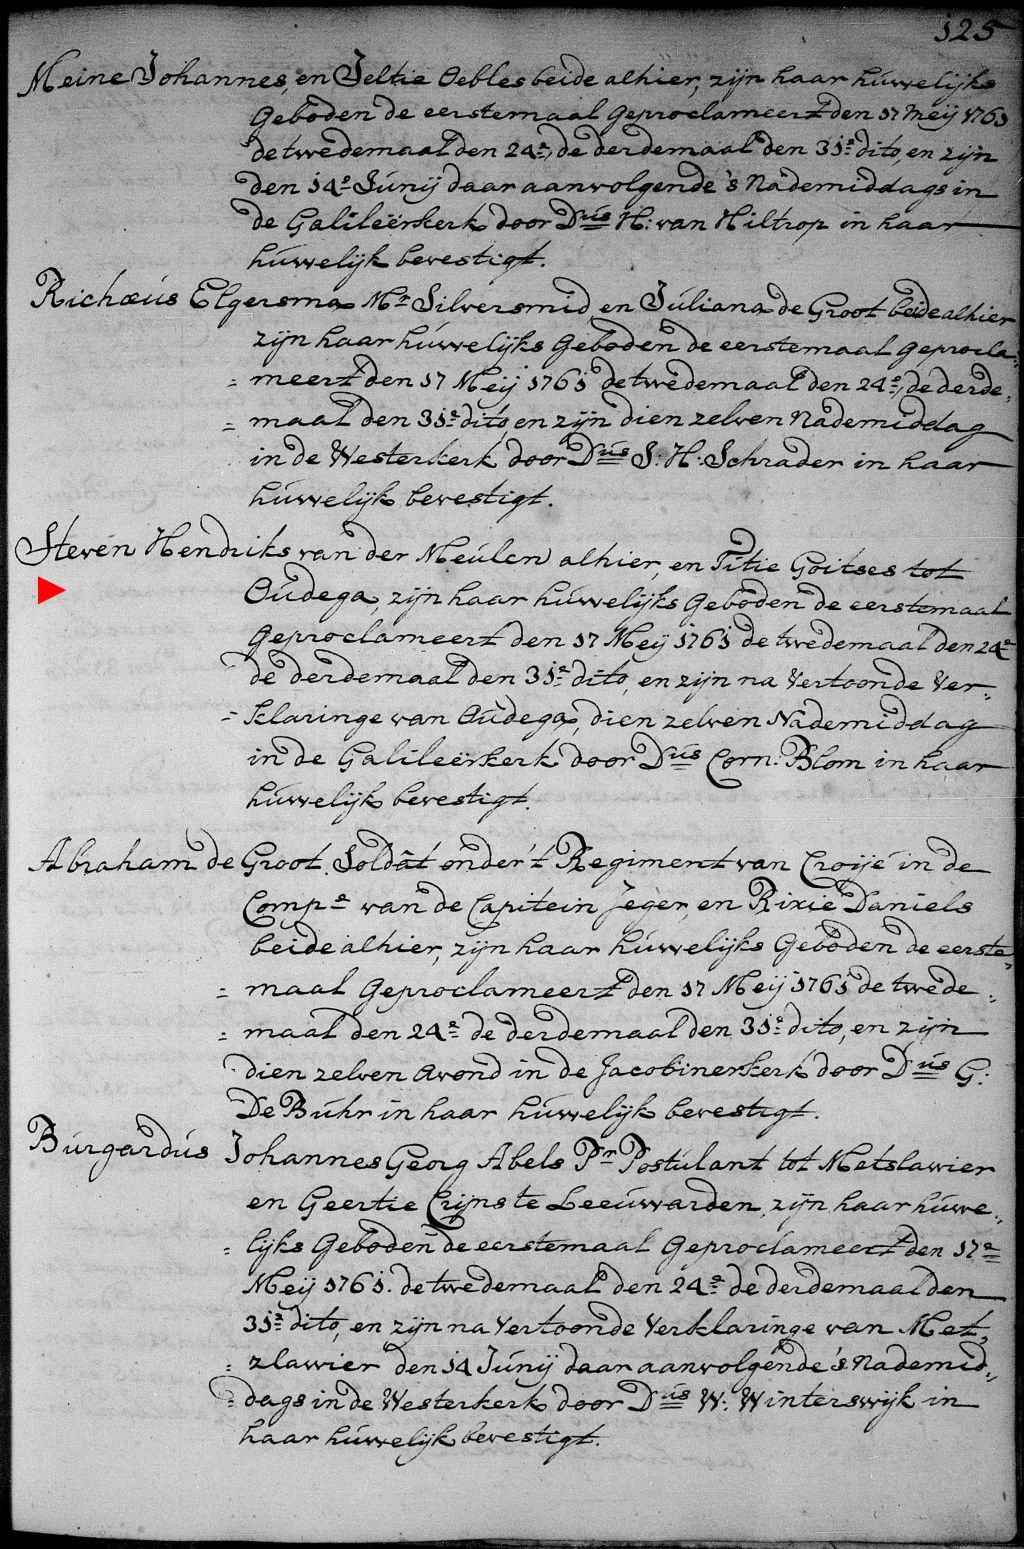 125
Meine Johannes, en Jeltie Oebles beide alhier, zijn haar húwelijks
Geboden de eerstemaal geproclameert den 17 Meij 1761
de twedemaal den 24e, de derdemaal den 31e dito, en zijn
den 14e Júnij daar aanvolgende 's Nademiddags in
de Galileërkerk door Dús H: van Hiltrop in haar
húwelijk bevestigt.
Richæús Elgersma Mr Silversmid, en Júliana de Groot beide alhier
zijn haar húwelijks Geboden de eerstemaal geprocla=
= meert den 17 Meij 1761 de twedemaal den 24e, de derde=
= maal den 31e dito, en zijn dien zelven Nademiddag
in de Westerkerk door Dús S: H: Schrader in haar
húwelijk bevestigt.
Steven Hendriks van der Meúlen alhier, en Titie Goitses tot
Oúdega, zijn haar húwelijks Geboden de eerstemaal
geproclameert den 17 Meij 1761 de twedemaal den 24e
de derdemaal den 31e dito, en zijn na Vertoonde Ver=
= klaringe van Oúdega, dien zelven Nademiddag
in de Galileërkerk door Dús Corn: Blom in haar
húwelijk bevestigt.
Abraham de Groot, Soldât onder 't Regiment van Croije in de
Compe van de Capitein Jeger, en Rixie Daniels
beide alhier, zijn haar húwelijks Geboden de eerste=
= maal geproclameert den 17 Meij 1761 de twede=
= maal den 24e de derdemaal den 31e dito, en zijn
dien zelven avond in de Jacobinerkerk door Dús G:
De Búhr in haar húwelijk bevestigt.
Búrgardús Johannes Georg Abels Pr Postúlant tot Metslawier
en Geertie Crijns te Leeúwarden, zijn haar húwe=
= lijks Geboden de eerstemaal geproclameert den 17e
Meij 1761. de twedemaal den 24e de derdemaal den
31e dito, en zijn na Vertoonde Verklaringe van Met=
= zlawier den 14 Júnij daar aanvolgende 's Nademid=
= dags in de Westerkerk door Dús W: Winterswijk in
haar húwelijk bevestigt.